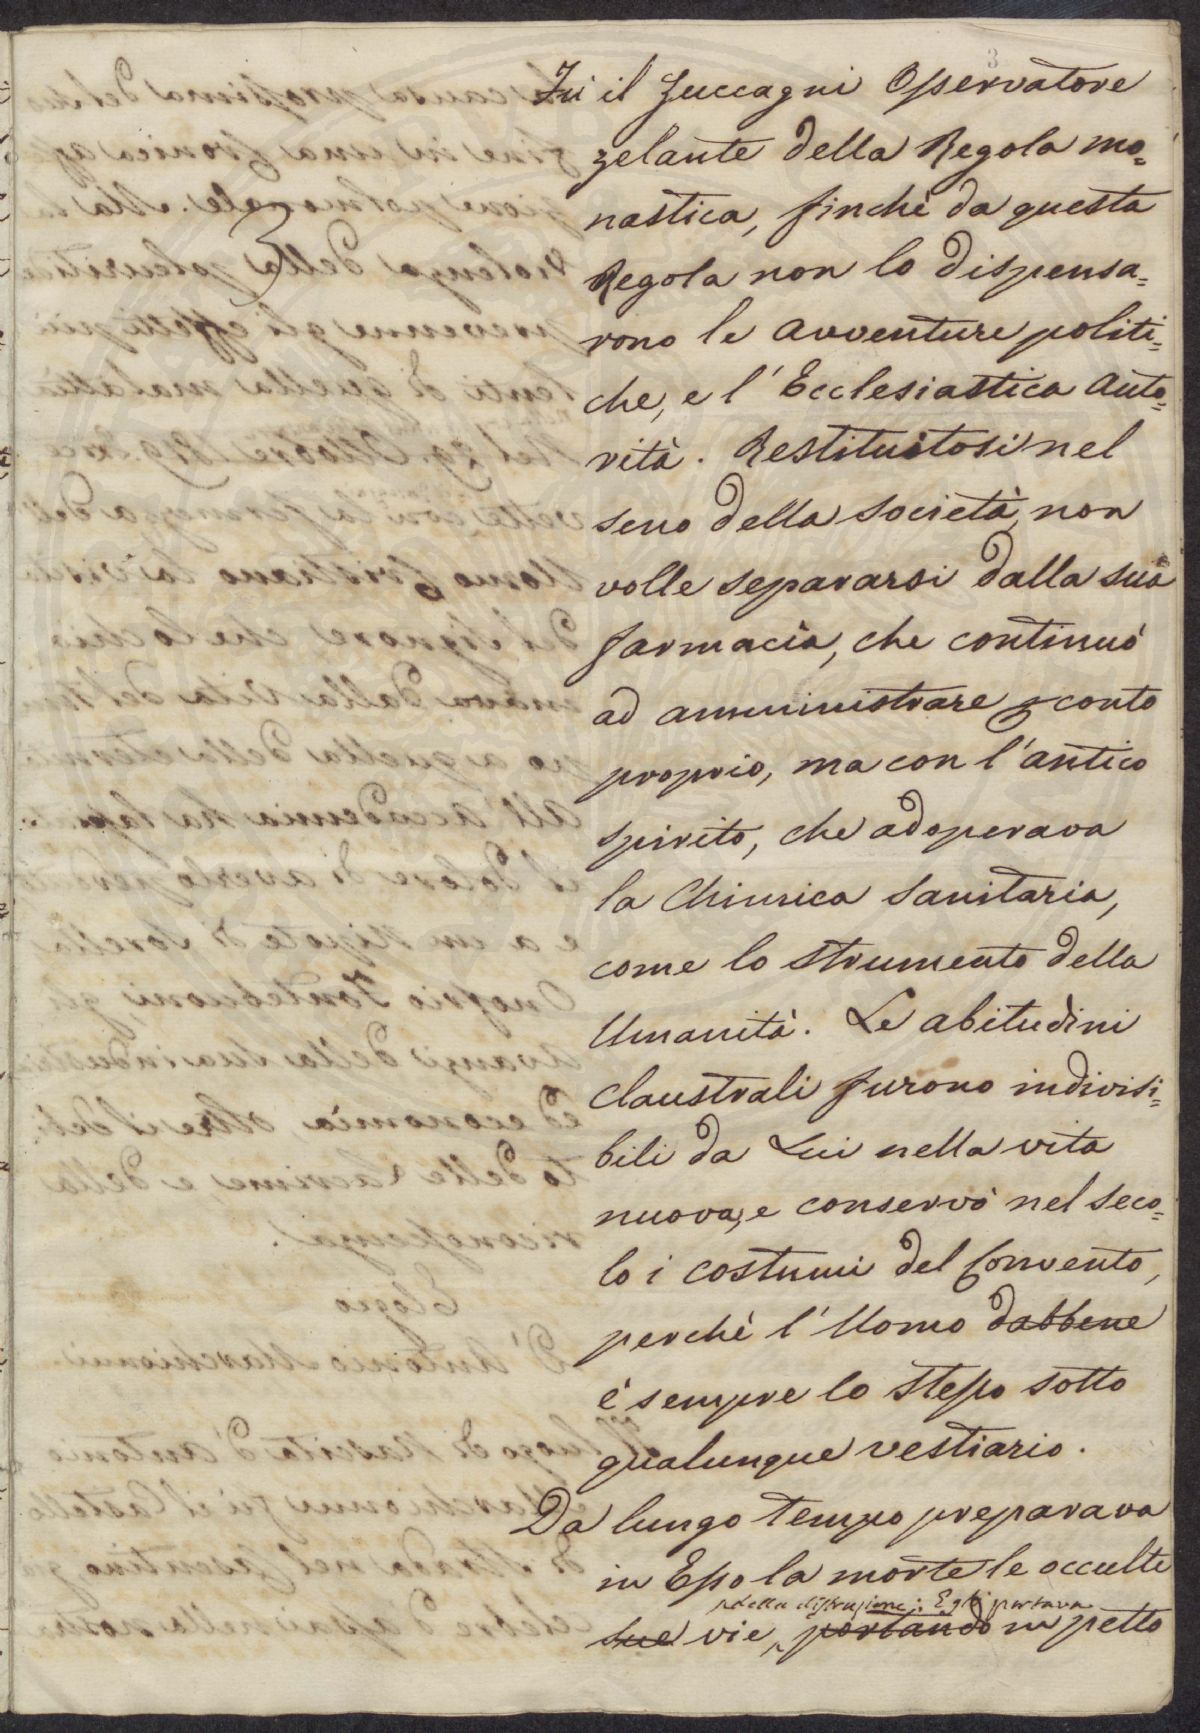 3
Fù il Zuccagni Osservatore
zelante della Regola mo=
nastica, finchè da questa
Regola non lo dispensa=
rono le avventure politi=
che, e l' Ecclesiastica auto=
rità. Restituitosi nel
seno della società, non
volle separarsi dalla sua
farmacìa, che continuò
ad amministrare p conto
proprio, ma con l'antico
spirito, che adoperava
la Chimica sanitaria,
come lo strumento della
Umanità. Le abitudini
claustrali furono indivisi=
bili da Lui nella vita
nuova, e conservò nel seco=
lo i costumi del Convento,
perchè l'Uomo dabbene
è sempre lo stesso sotto
qualunque vestiario.
Da lungo tempo preparava
in Esso la morte le occulte
della distruzione: Egli portava
sue vie, portando in petto